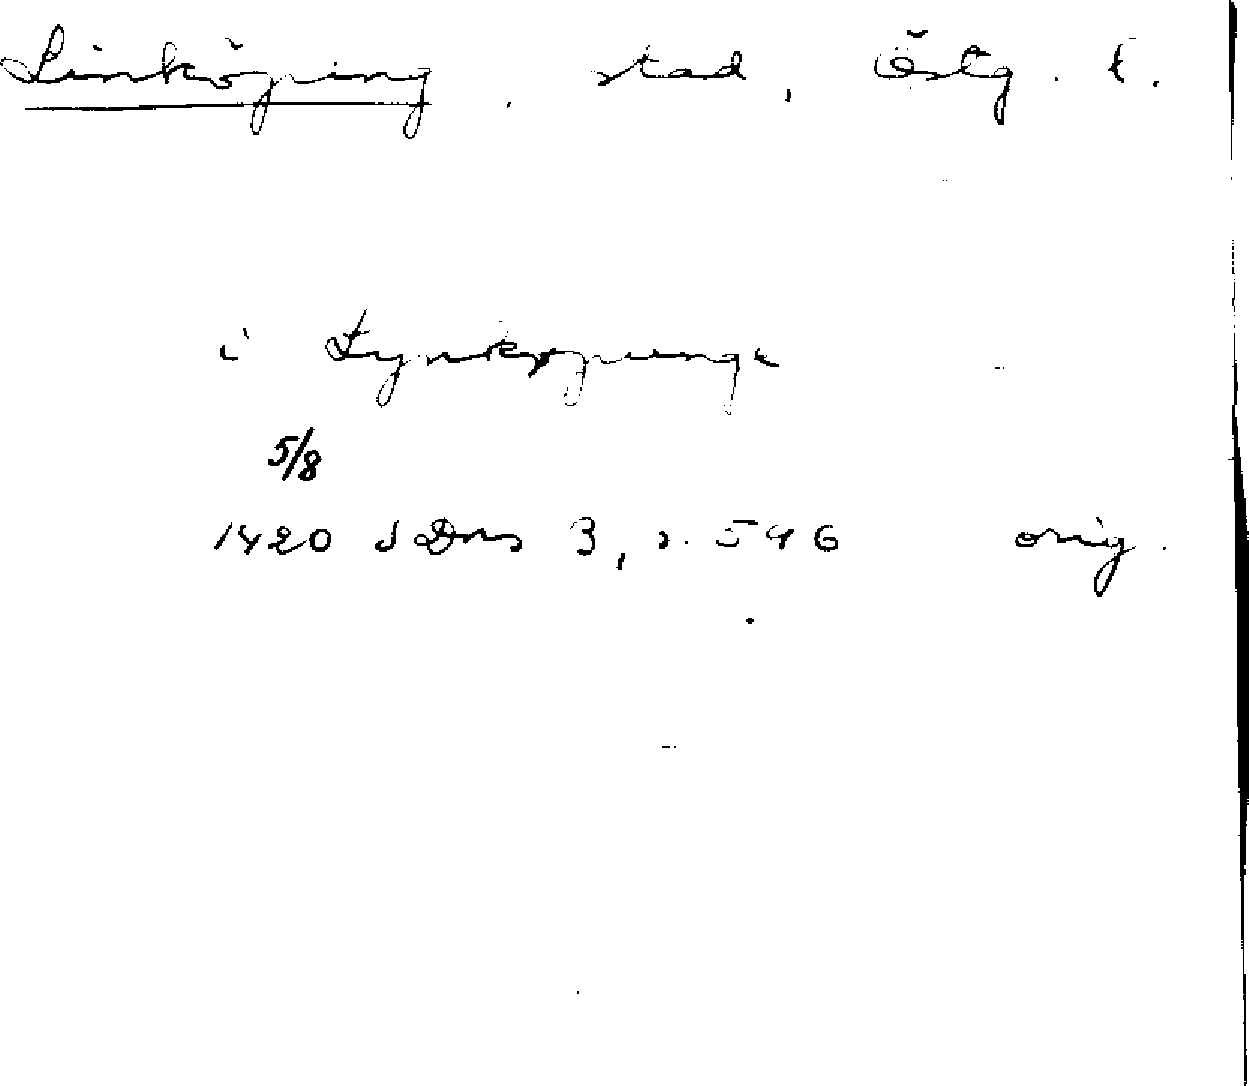 Linköping, stad, Östg. l.
i Lynkøpunge
5/8
1420 SDns 3, s. 546 orig.